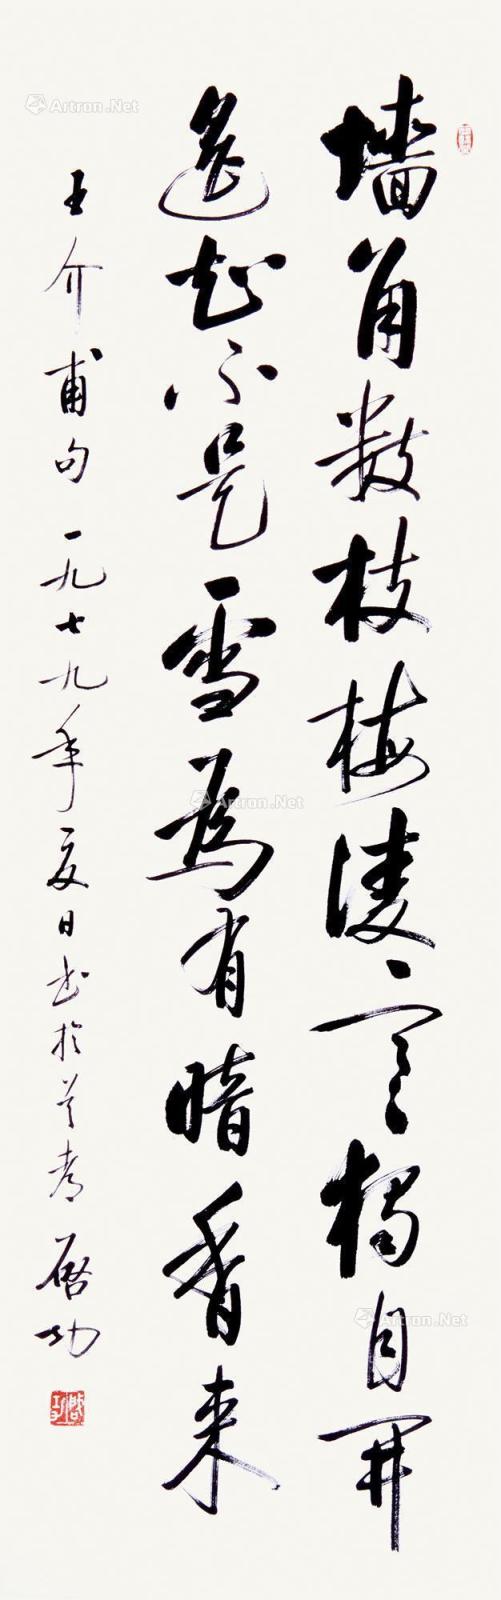 墙角数枝梅凌寒独自开
遥知不是雪为有暗香来
王介甫句一九七九年夏日书于首都启功
启功
Artron.Net
Artron.Net
Artron.Net